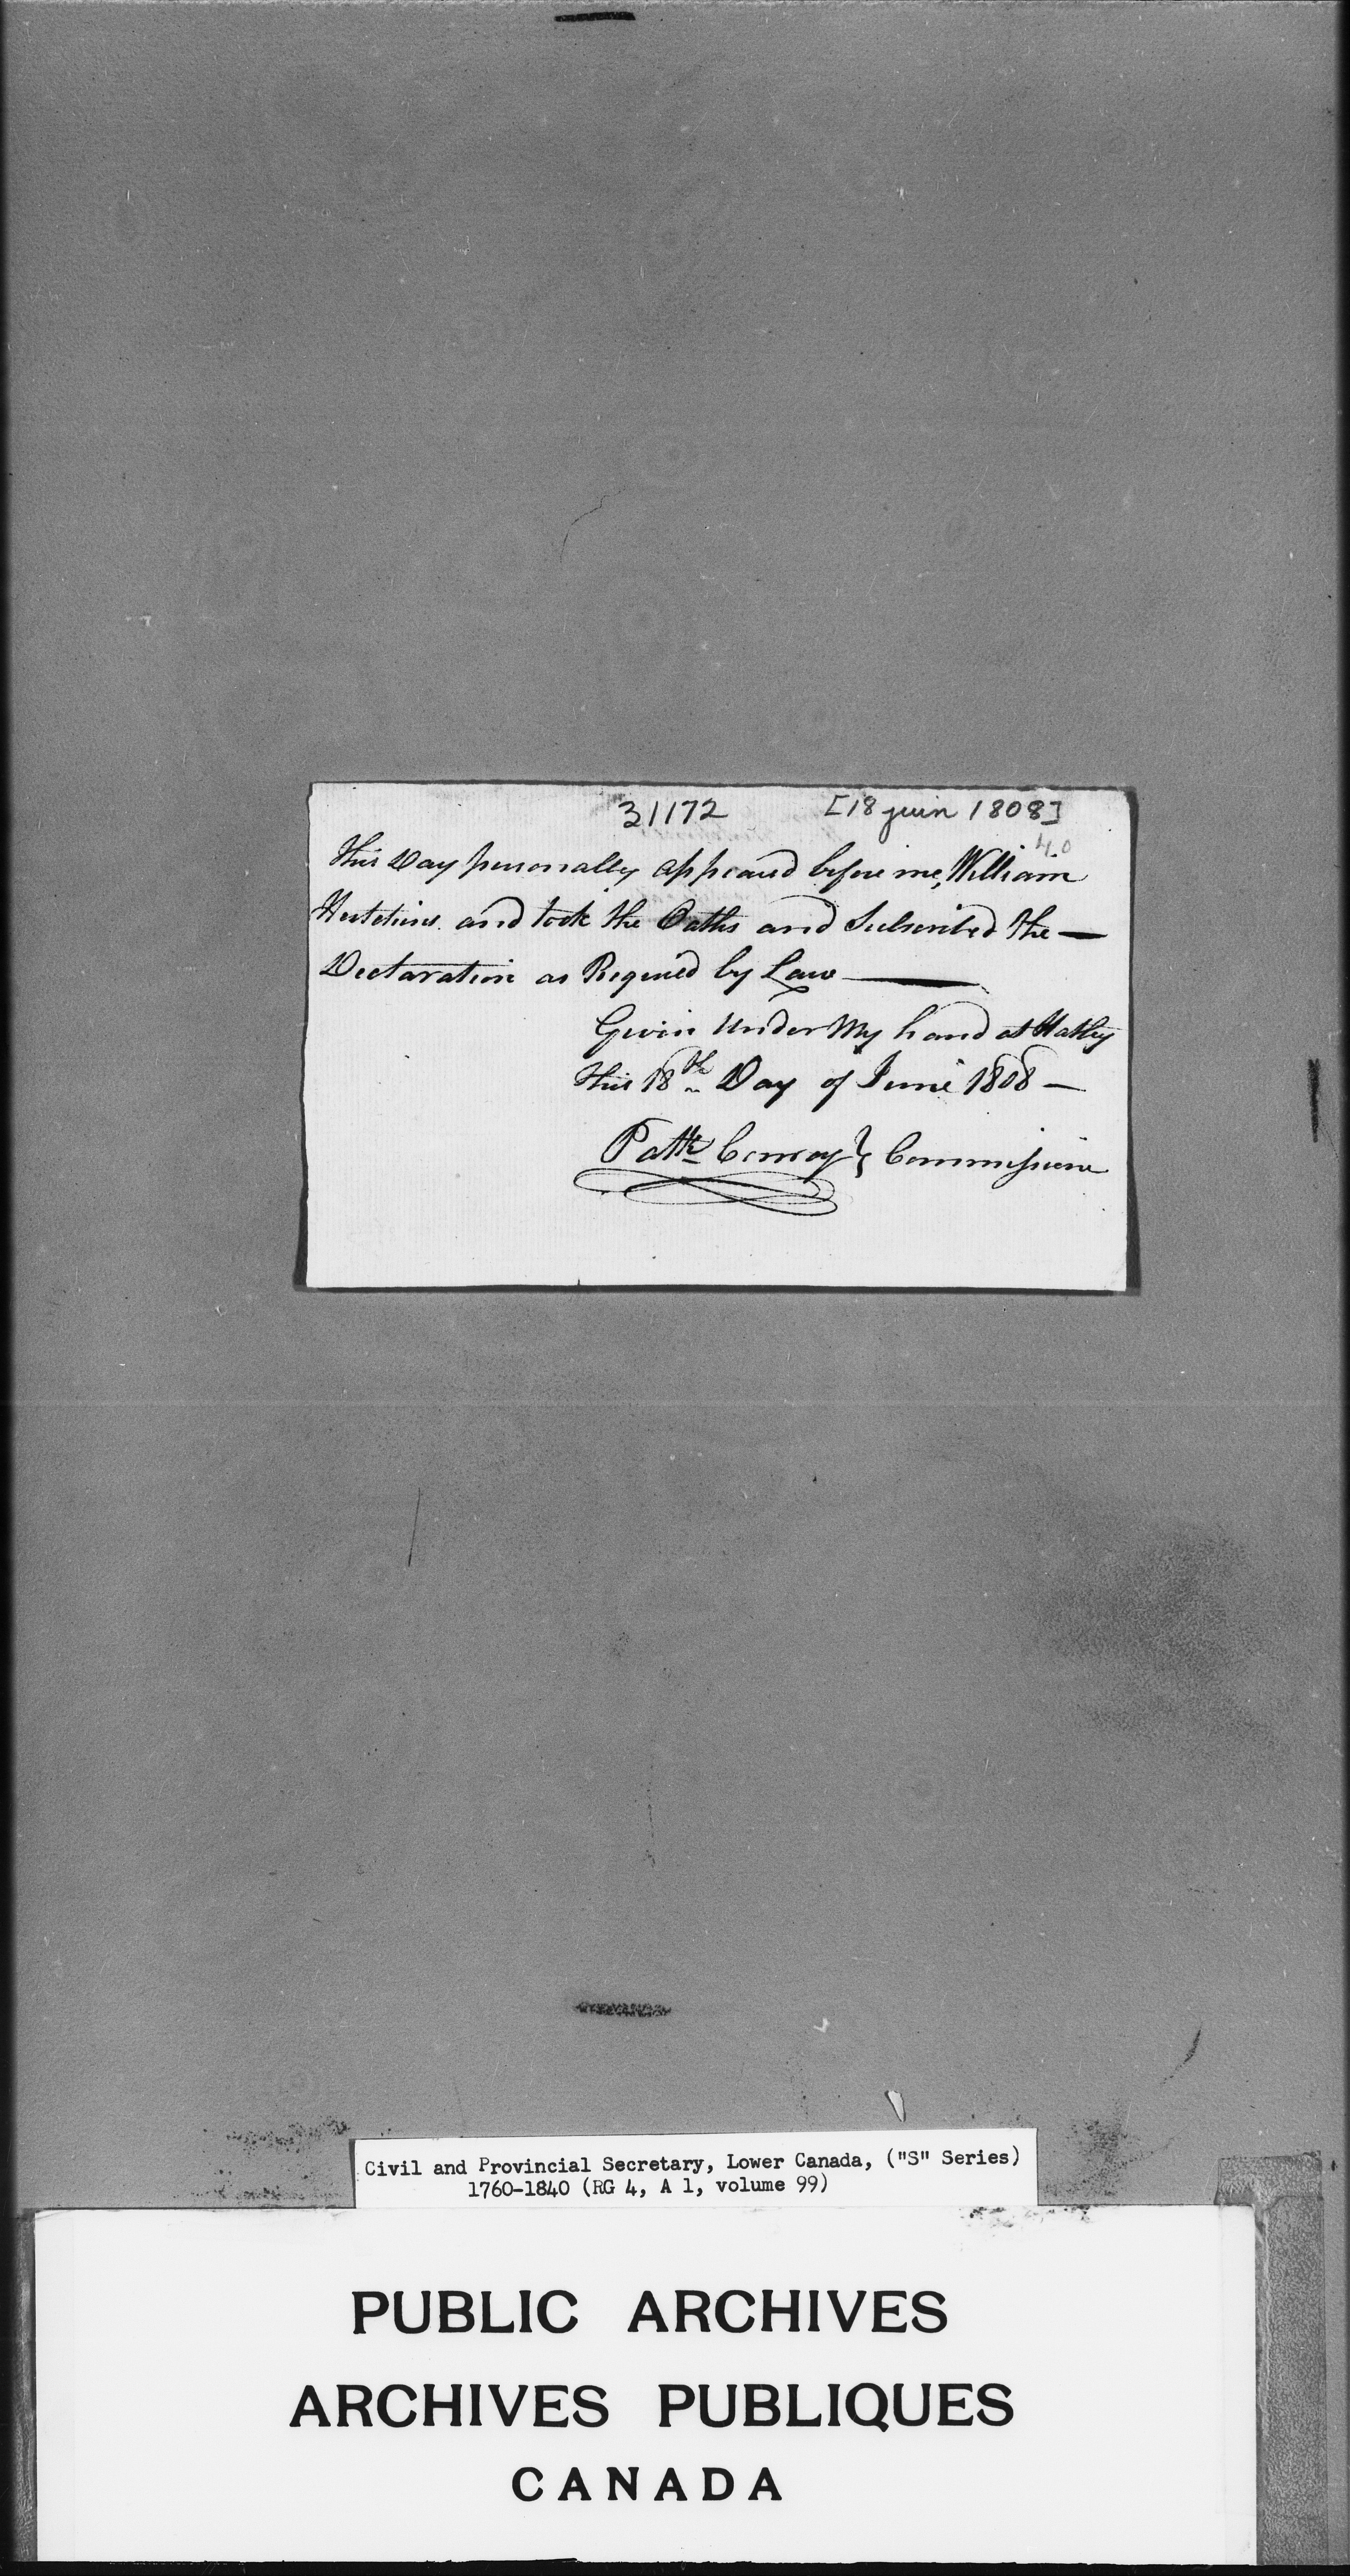 31172 [18 juin 1808]
40
This Day personally appeared before me, William
Hutchins and took the Oaths and Subscribed the —
Declaration as Required by Law —
Given Under My hand at Hatley
this 18th Day of June 1808 —
Patk Conroy } Commissioner
Civil and Provincial Secretary, Lower Canada, ("S" Series)
1760-1840 (RG 4, A 1, volume 99)
PUBLIC ARCHIVES
ARCHIVES PUBLIQUES
CANADA